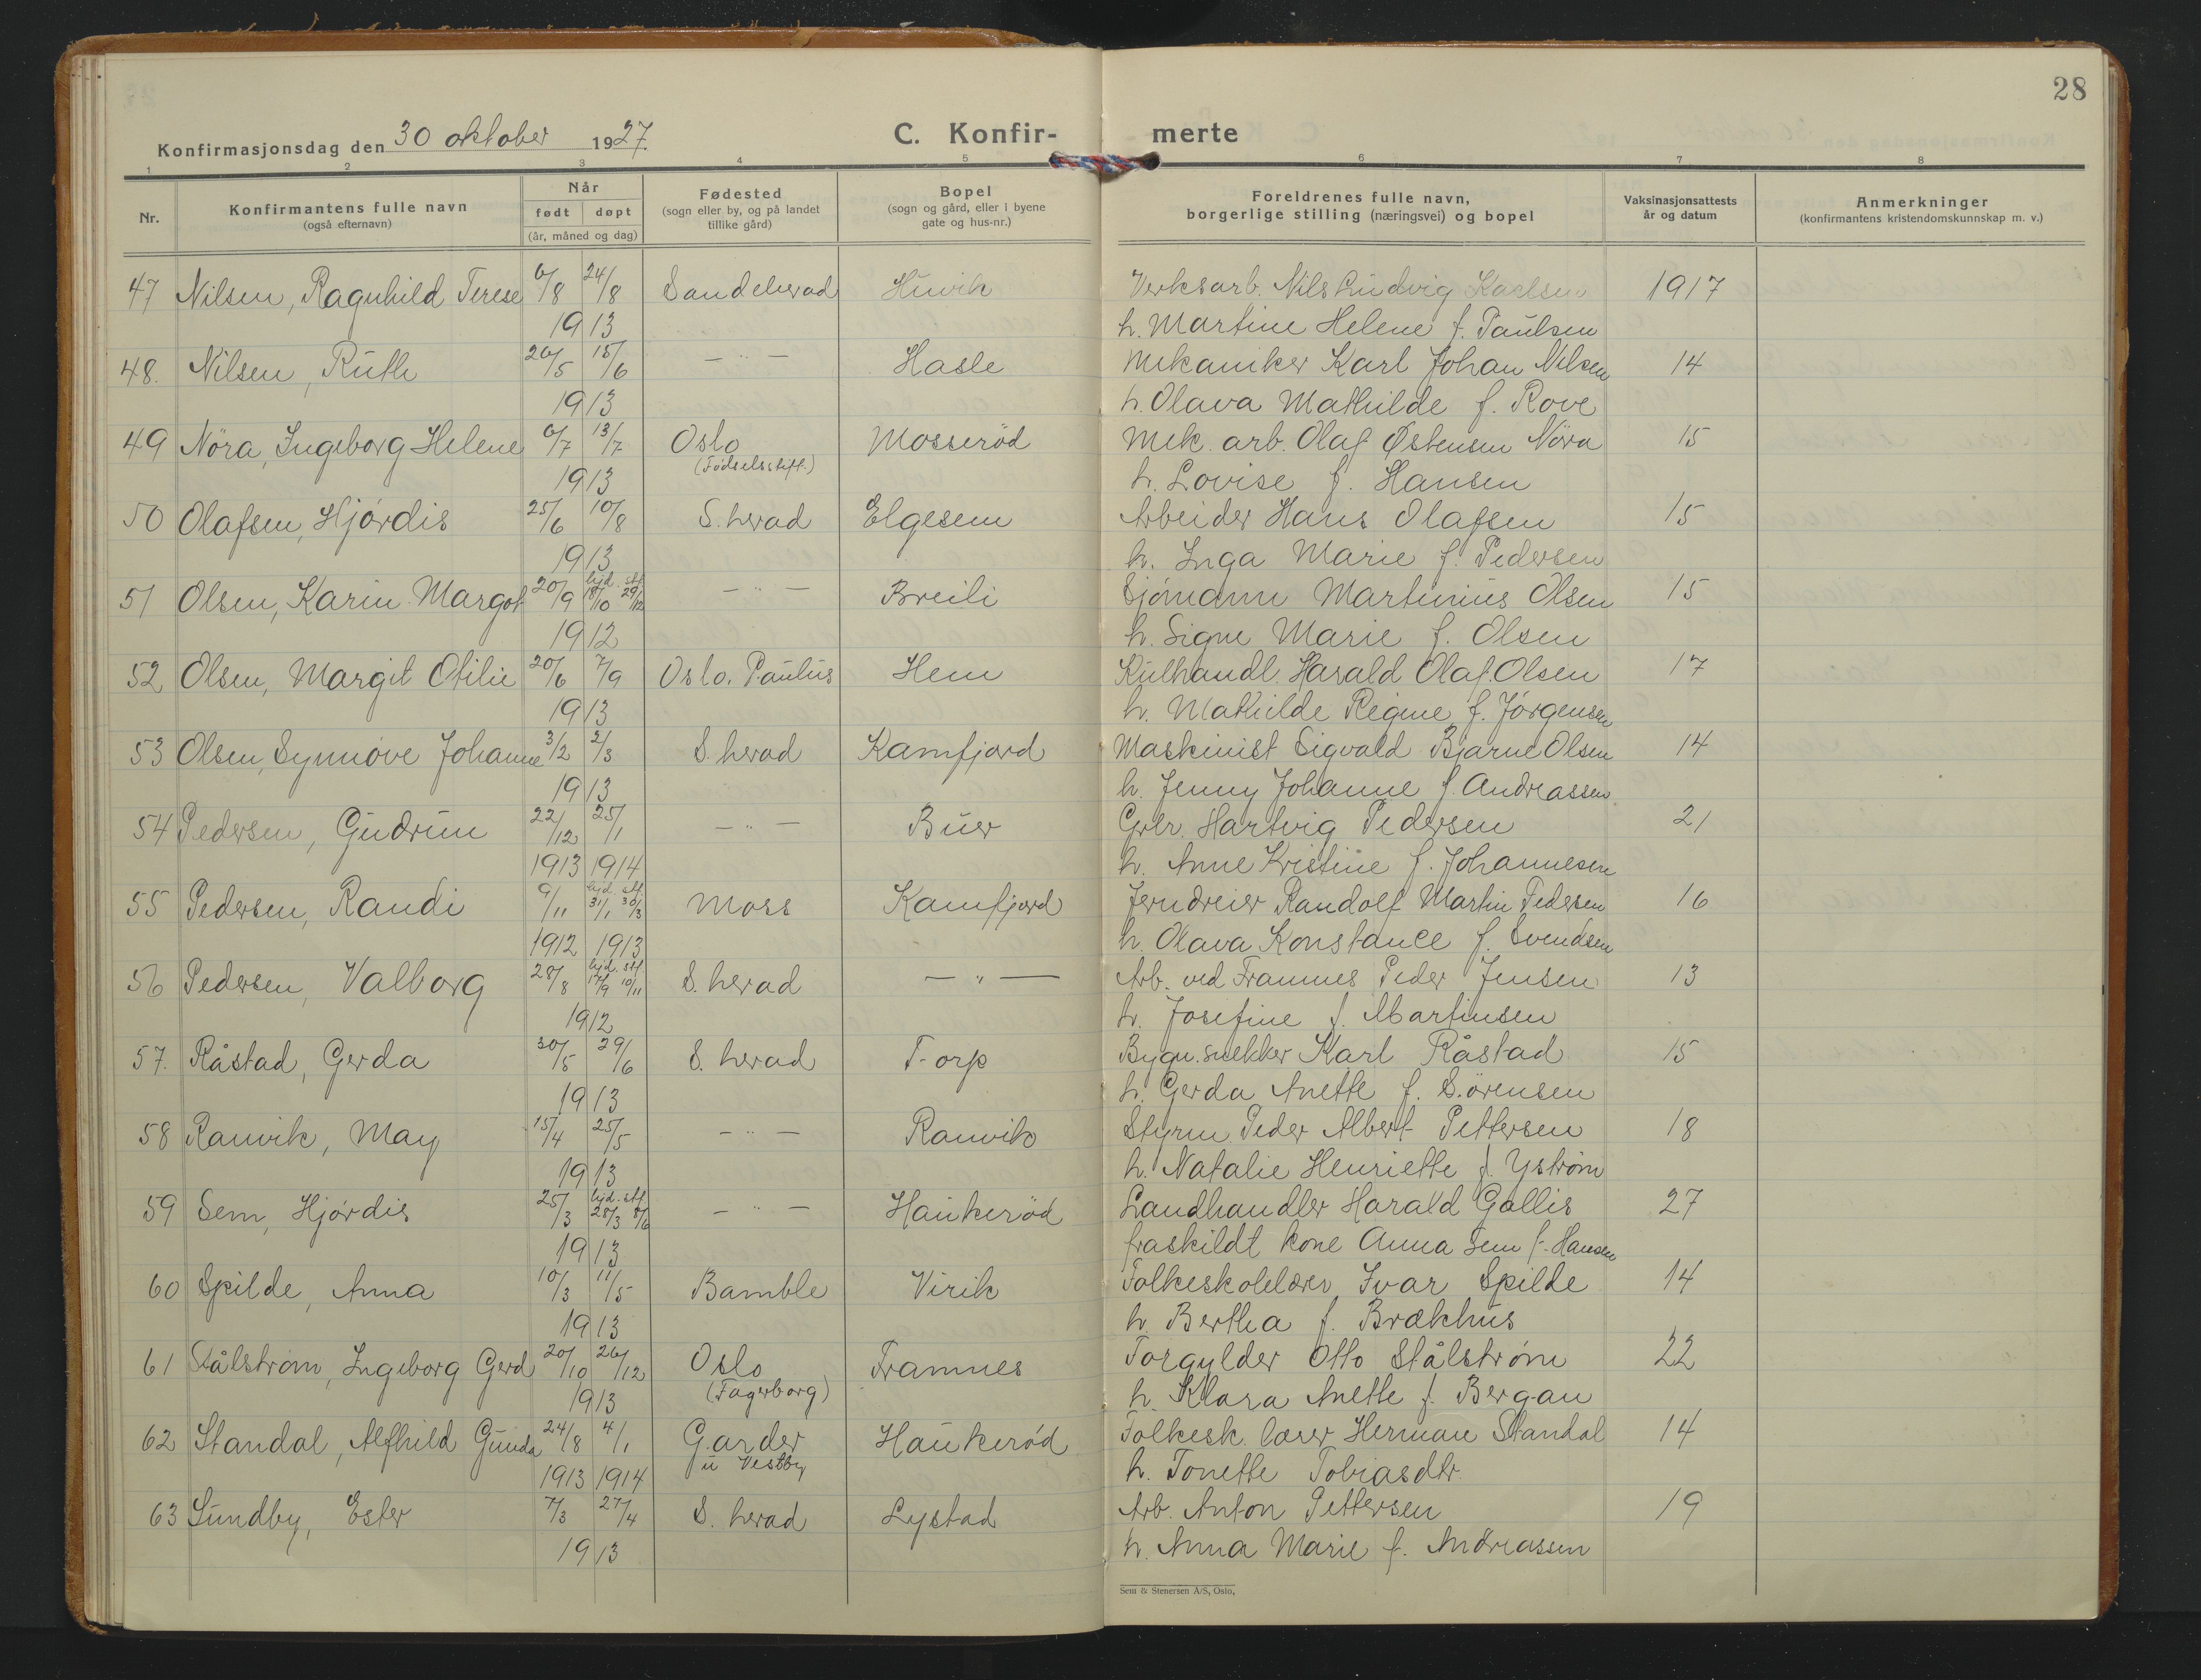 28
Konfirmasjonsdag den 30 oktober 1927.
C. Konfir- merte
1 2 3 4 5 6 7 8
Nr.
Konfirmantens fulle navn
(også efternavn)
Når
født døpt
(år, måned og dag)
Fødested
(sogn eller by, og på landet
tillike gård)
Bopel
(sogn og gård, eller i byene
gate og hus-nr.)
Foreldrenes fulle navn,
borgerlige stilling (næringsvei) og bopel
Vaksinasjonsattests
år og datum
Anmerkninger
(konfirmantens kristendomskunnskap m. v.)
47 Nilsen, Ragnhild Terese 6/8 24/8 Sandeherad Huvik Verksarb. Nils Ludvig Karlsen 1917
1913 h. Martine Helene f. Paulsen
48. Nilsen, Ruth 26/5 15/6 — " — Hasle Mekaniker Karl Johan Nilsen 14
1913 h. Olava Mathilde f. Rove
49 Nöra, Ingeborg Helene 6/7 13/7 Oslo Mosserød Mek. arb. Olaf Østensen Nöra 15
(Fødselsstift.)
1913 h. Lovise f. Hansen
50 Olafsen, Hjørdis 25/6 10/8 S. herad Elgesem Arbeider Hans Olafsen 15
1913 h. Inga Marie f. Pedersen
51 Olsen, Karin Margot 20/9 hjd. 18/10 stf. 29/12 — " — Breili Sjömann Martinius Olsen 15
1912 h. Signe Marie f. Olsen
52 Olsen, Margit Otilie 20/6 7/9 Oslo. Paulus Hem Kulhandl. Harald Olaf. Olsen 17
1913 h. Mathilde Regine f. Jörgensen
53 Olsen, Synnöve Johanne 3/2 2/3 S. herad Kamfjord Maskinist Sigvald Bjarne Olsen 14
1913 h. Jenny Johanne f. Andreassen
54 Pedersen, Gudrun 22/12 25/1 — " — Buer Grbr. Hartvig Pedersen 21
1913 1914 h. Anne Kristine f. Johannesen
55 Pedersen, Randi 9/11 hjd. 31/1 stf. 30/3 Moss Kamfjord Jerndreier Randolf Martin Pedersen 16
1912 1913 h. Olava Konstance f. Svendsen
56 Pedersen, Valborg 28/8 hjd. 17/9 stf. 10/11 S. herad — " — Arb. ved Framnes Peder Jensen 13
1912 h. Josefine f. Martinsen
57. Råstad, Gerda 30/5 29/6 S. herad Torp Bygn. snekker Karl Råstad 15
1913 h. Gerda Anette f. Sörensen
58 Ranvik, May 15/4 25/5 — " — Ranvik Styrm. Peder Albert Pettersen 18
1913 h. Natalie Henriette f. Yström
59 Sem, Hjördis 25/3 hjd. 28/3 stf. 8/6 — " — Haukeröd Landhandler Harald Gallis 27
1913 fraskildt kone Anna Sem f. Hansen
60 Spilde, Anna 10/3 11/5 Bamble Virik Folkeskolelærer Ivar Spilde 14
1913 h. Bertha f. Brækhus
61 Stålström, Ingeborg Gerd 20/10 26/12 Oslo Framnes Forgylder Otto Stålström 22
(Fagerborg)
1913 h. Klara Anette f. Bergan
62 Standal, Alfhild Gunda 24/8 4/1 Garder Haukeröd Folkesk. lærer Herman Standal 14
i Vestby
1913 1914 h. Tonette Tobiasdtr.
63 Sundby, Ester 7/3 27/4 S. herad Lystad Arb. Anton Pettersen 19
1913 h. Anna Marie f. Andreassen
Sem & Stenersen A/S, Oslo.